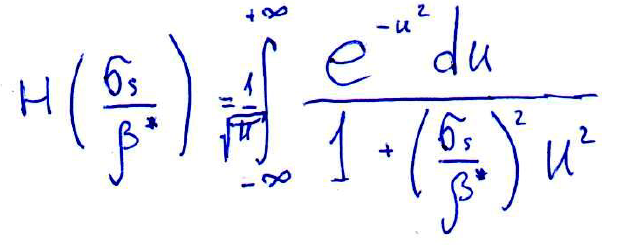 H(σs/β*) = 1/√π ∫_{-∞}^{+∞} e^{-u²} du / (1 + (σs/β*)² u²)